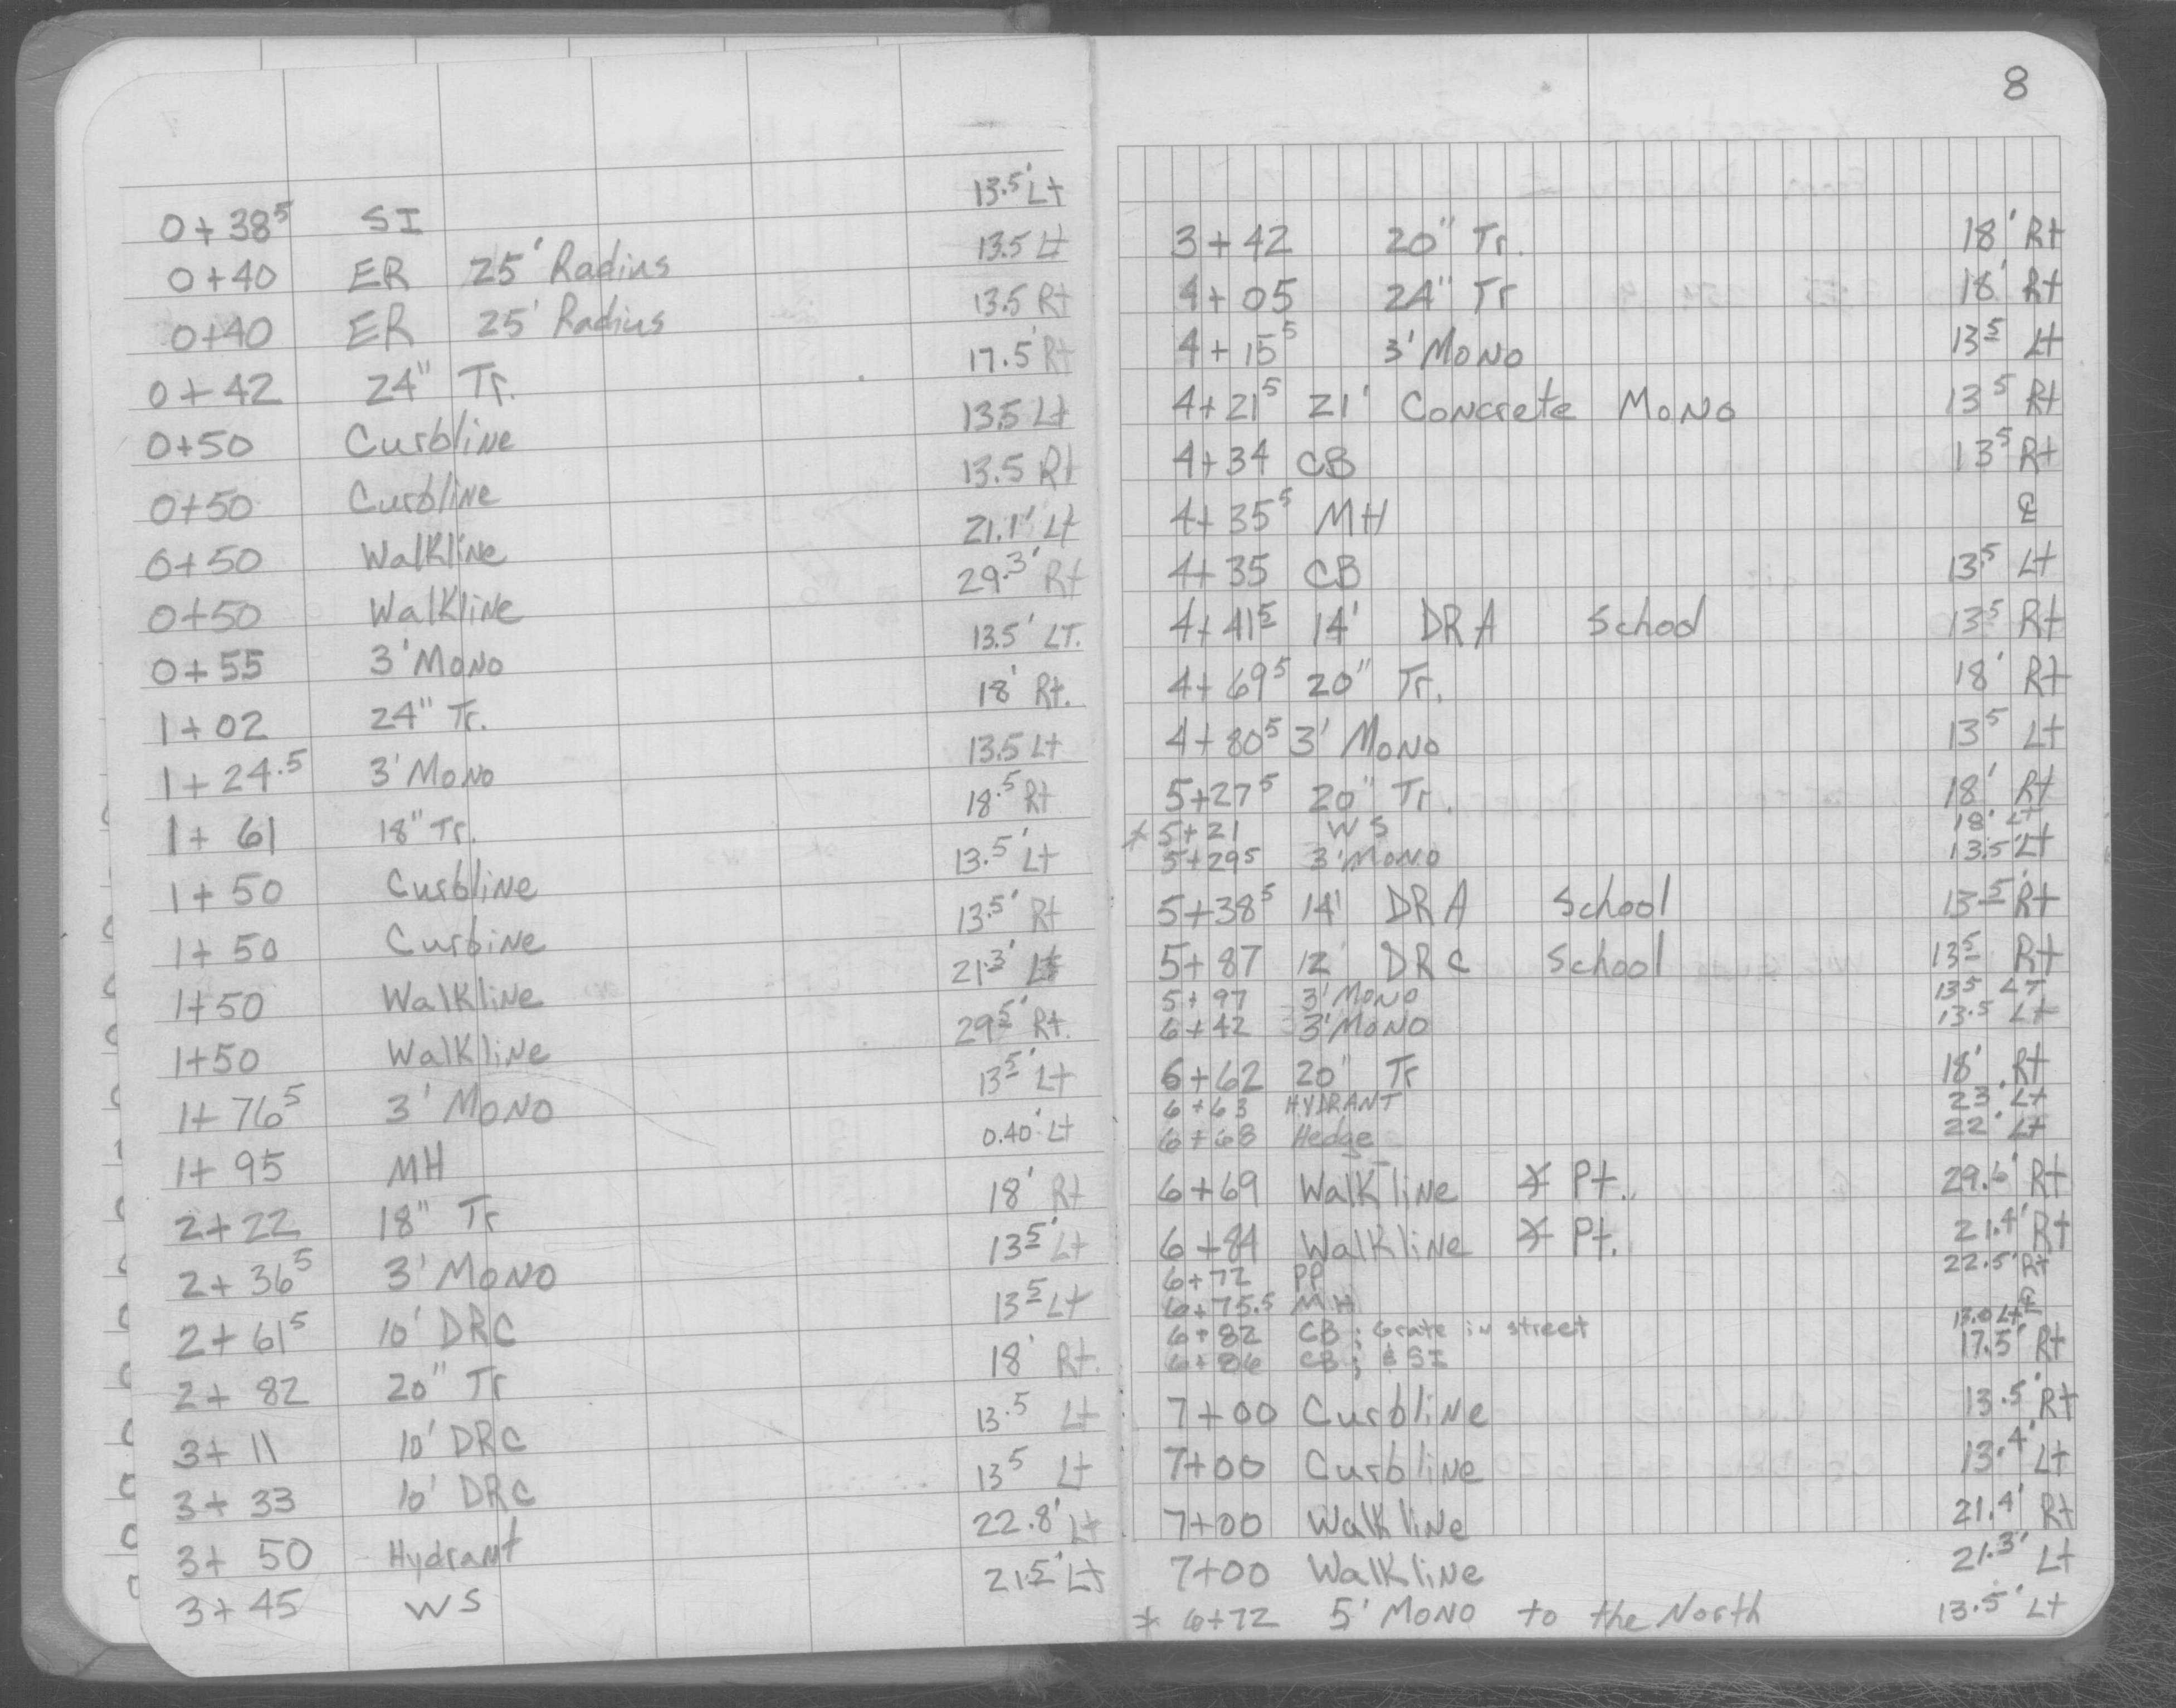 0+38⁵ SI 13.5' Lt
0+40 ER 25' Radius 13.5 Lt
0+40 ER 25' Radius 13.5 Rt
0+42 24" Tr. 17.5' Rt
0+50 Curbline 13.5 Lt
0+50 Curbline 13.5 Rt
0+50 Walkline 21.1' Lt
0+50 Walkline 29.3' Rt
0+55 3' Mono 13.5' LT.
1+02 24" Tr. 18' Rt.
1+24.5 3' Mono 13.5 Lt
1+61 18" Tr. 18.5 Rt
1+50 Curbline 13.5' Lt
1+50 Curbine 13.5' Rt
1+50 Walkline 21.3' Lt
1+50 Walkline 29⁵' Rt.
1+76⁵ 3' Mono 13⁵' Lt
1+95 MH 0.40' Lt
2+22 18" Tr 18' Rt
2+36⁵ 3' Mono 13⁵' Lt
2+61⁵ 10' DRC 13⁵ Lt
2+82 20" Tr 18' Rt.
3+11 10' DRC 13.5 Lt
3+33 10' DRC 13⁵ Lt
3+50 Hydrant 22.8' Lt
3+45 WS 21.5' Lt
8
3+42 20" Tr. 18' Rt
4+05 24" Tr 18' Rt
4+15⁵ 3' Mono 13⁵ Lt
4+21⁵ 21' Concrete Mono 13⁵ Rt
4+34 CB 13⁵ Rt
4+35⁵ MH ℄
4+35 CB 13⁵ Lt
4+41⁵ 14' DRA School 13⁵ Rt
4+69⁵ 20" Tr. 18' Rt
4+80⁵ 3' Mono 13⁵ Lt
5+27⁵ 20" Tr. 18' Rt
* 5+21 WS 18' Lt
5+29⁵ 3' Mono 13.5' Lt
5+38⁵ 14' DRA School 13.5' Rt
5+87 12' DRC School 13⁵ Rt
5+97 3' Mono 13⁵ LT
6+42 3' Mono 13.5 Lt
6+62 20" Tr 18' Rt
6+63 HYDRANT 23' Lt
6+68 Hedge 22' Lt
6+69 Walkline ∡ Pt. 29.6' Rt
6+84 Walkline ∡ Pt. 21.4' Rt
6+72 PP 22.5' Rt
6+75.5 MH ℄
6+82 CB; Grate in street 13.0 Lt
6+86 CB; & SI 17.5' Rt
7+00 Curbline 13.5' Rt
7+00 Curbline 13.4' Lt
7+00 Walkline 21.4' Rt
7+00 Walkline 21.3' Lt
* 6+72 5' Mono to the North 13.5' Lt